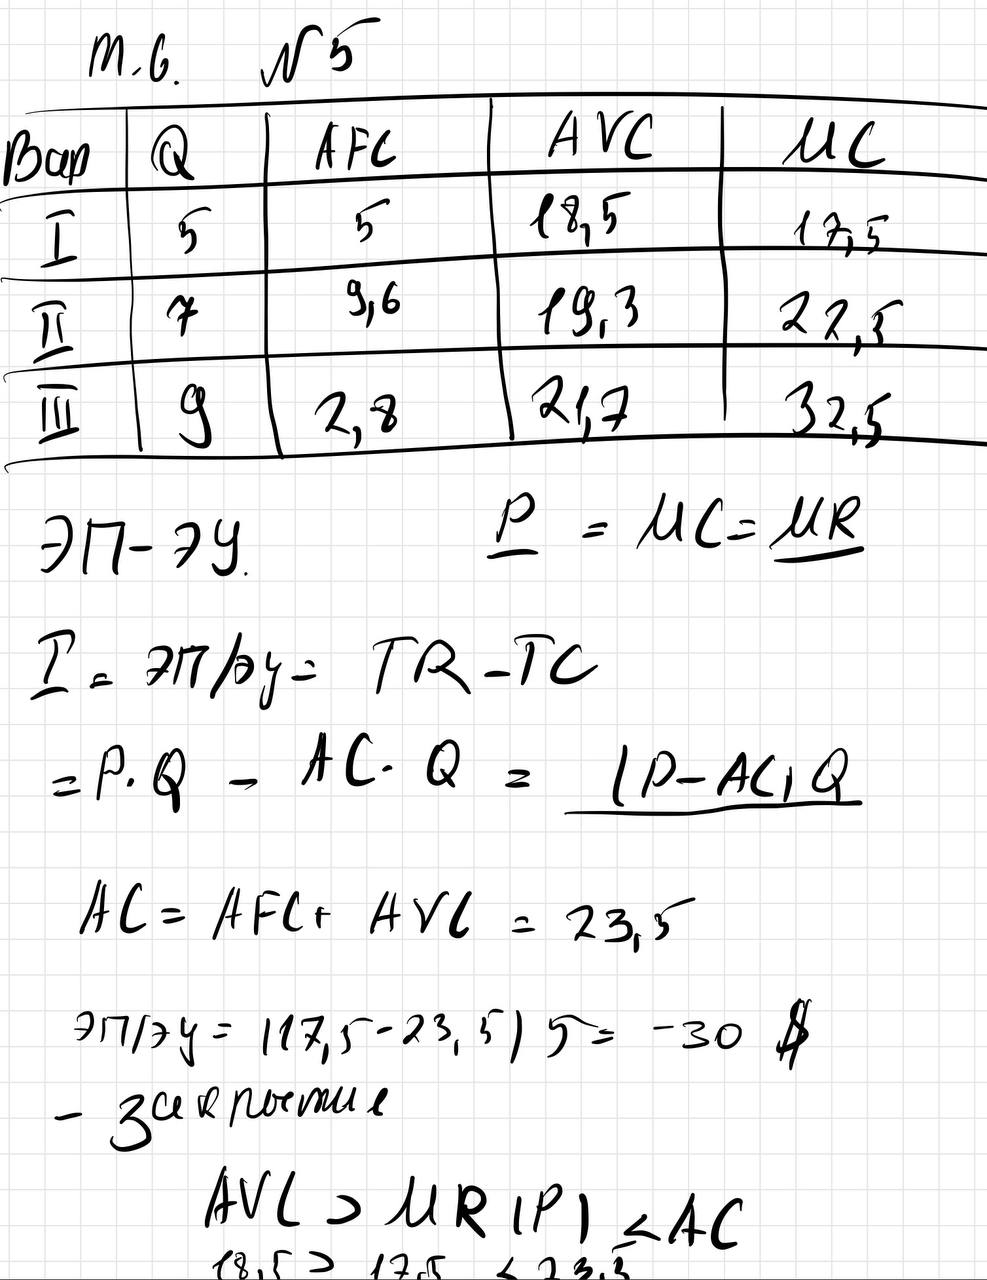 м.б. №5
Вар Q AFC AVC MC
I 5 5 18,5 17,5
II 7 9,6 19,3 22,5
III 9 2,8 21,7 32,5
ЭП-ЭУ. P = MC = MR
I = ЭП/ЭУ = TR - TC
= P·Q - AC·Q = (P-AC)Q
AC = AFC + AVC = 23,5
ЭП/ЭУ = (17,5-23,5) 5 = -30 $
- закрытие
AVC > MR (P) < AC
18,5 > 17,5 < 23,5